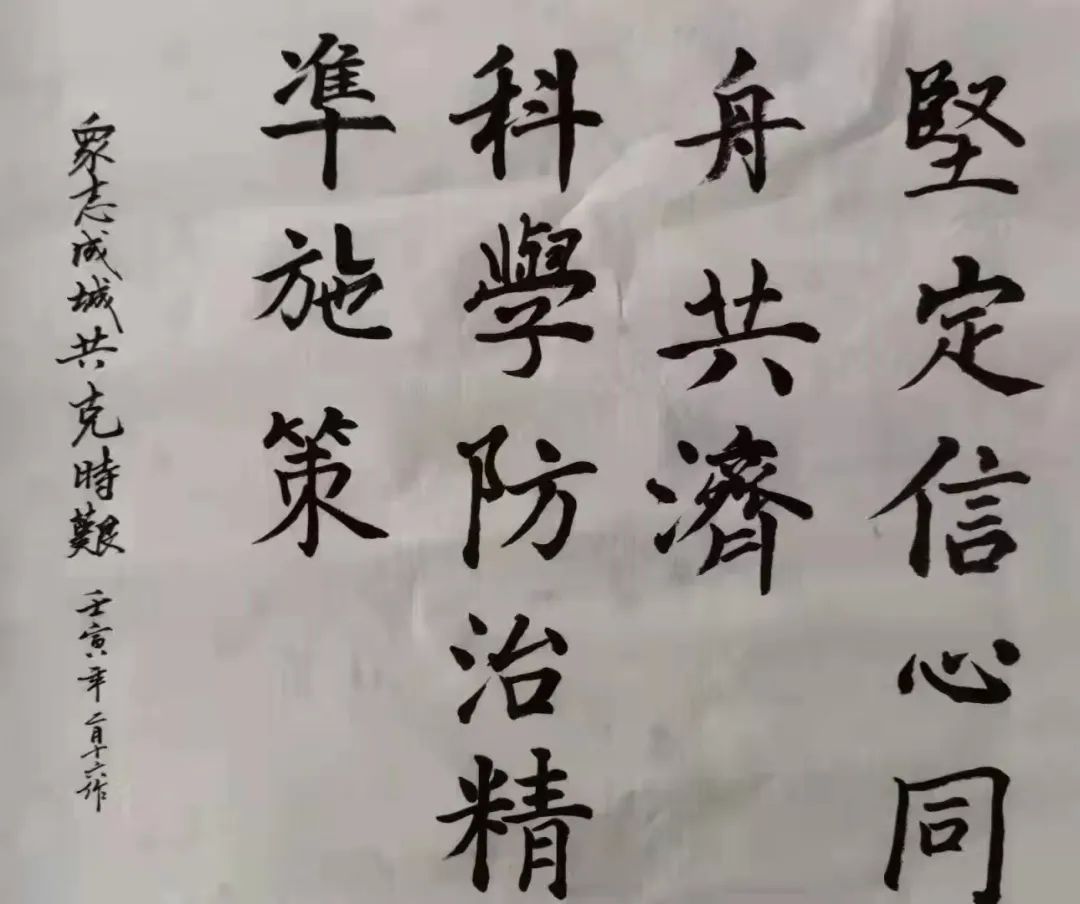 堅定信心同
舟共濟
科學防治精
準施策
衆志成城共克時艱
壬寅年二月十六作